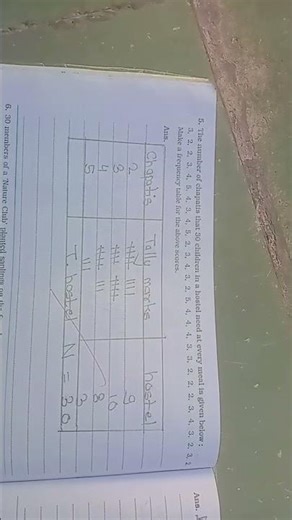 Ans.
5. The number of chapatis that 30 children in a hostel need at every meal is given below :
3, 2, 2, 3, 4, 5, 4, 2, 4, 3, 2, 2, 4, 3, 2, 5, 4, 4, 4, 3, 3, 2, 2, 2, 3, 4, 3, 2, 3, 2
Make a frequency table for the above scores.
Ans.
Chapatis Tally marks hostel
2 9
3 10
4 8
5 3
T. hostel N = 30
6. 30 members of a 'Nature Club' planted saplings on